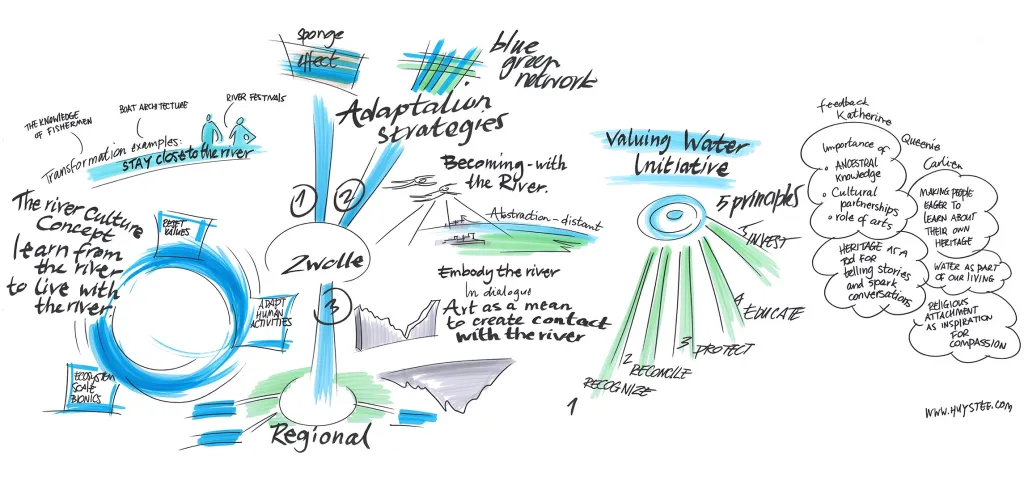 sponge
effect
blue
green
network
Adaptation
strategies
THE KNOWLEDGE
OF FISHERMEN
BOAT ARCHITECTURE
RIVER FESTIVALS
Transformation examples:
STAY close to the river
The river Culture
Concept
learn from
the river
to live with
the river.
RESET
VALUES
ADAPT
HUMAN
ACTIVITIES
ECOSYSTEM
SCALE
BIONICS
1
2
Zwolle
3
Regional
Becoming-with
the River.
Abstraction-distant
Embody the river
In dialogue
Art as a mean
to create contact
with the river
Valuing Water
Initiative
5 principles
5 INVEST
4
EDUCATE
3 PROTECT
2 RECONCILE
RECOGNIZE
1
feedback
Katherine
Importance of
• ANCESTRAL
Knowledge
• Cultural
partnerships
• role of arts
HERITAGE AS A
tool FOR
telling stories
and spark
conversations
Queenie
Carlien
MAKING PEOPLE
EAGER TO
LEARN ABOUT
THEIR OWN
HERITAGE
WATER AS PART
OF OUR LIVING
RELIGIOUS
ATTACHMENT
AS INSPIRATION
FOR
COMPASSION
WWW.HUYSTEE.COM